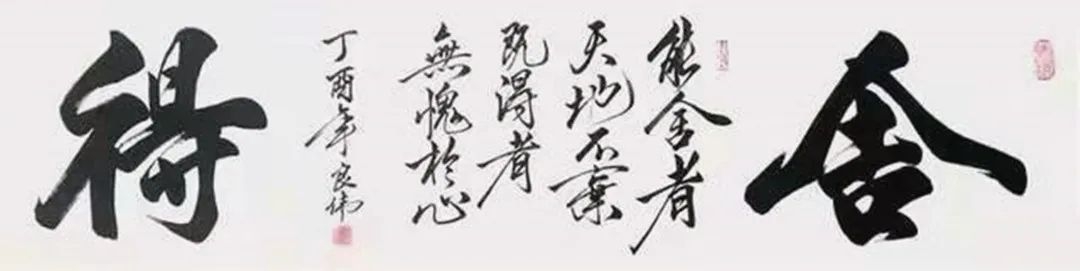 舍
能舍者
天地不棄
既得者
無愧於心
丁酉年 良伟
得